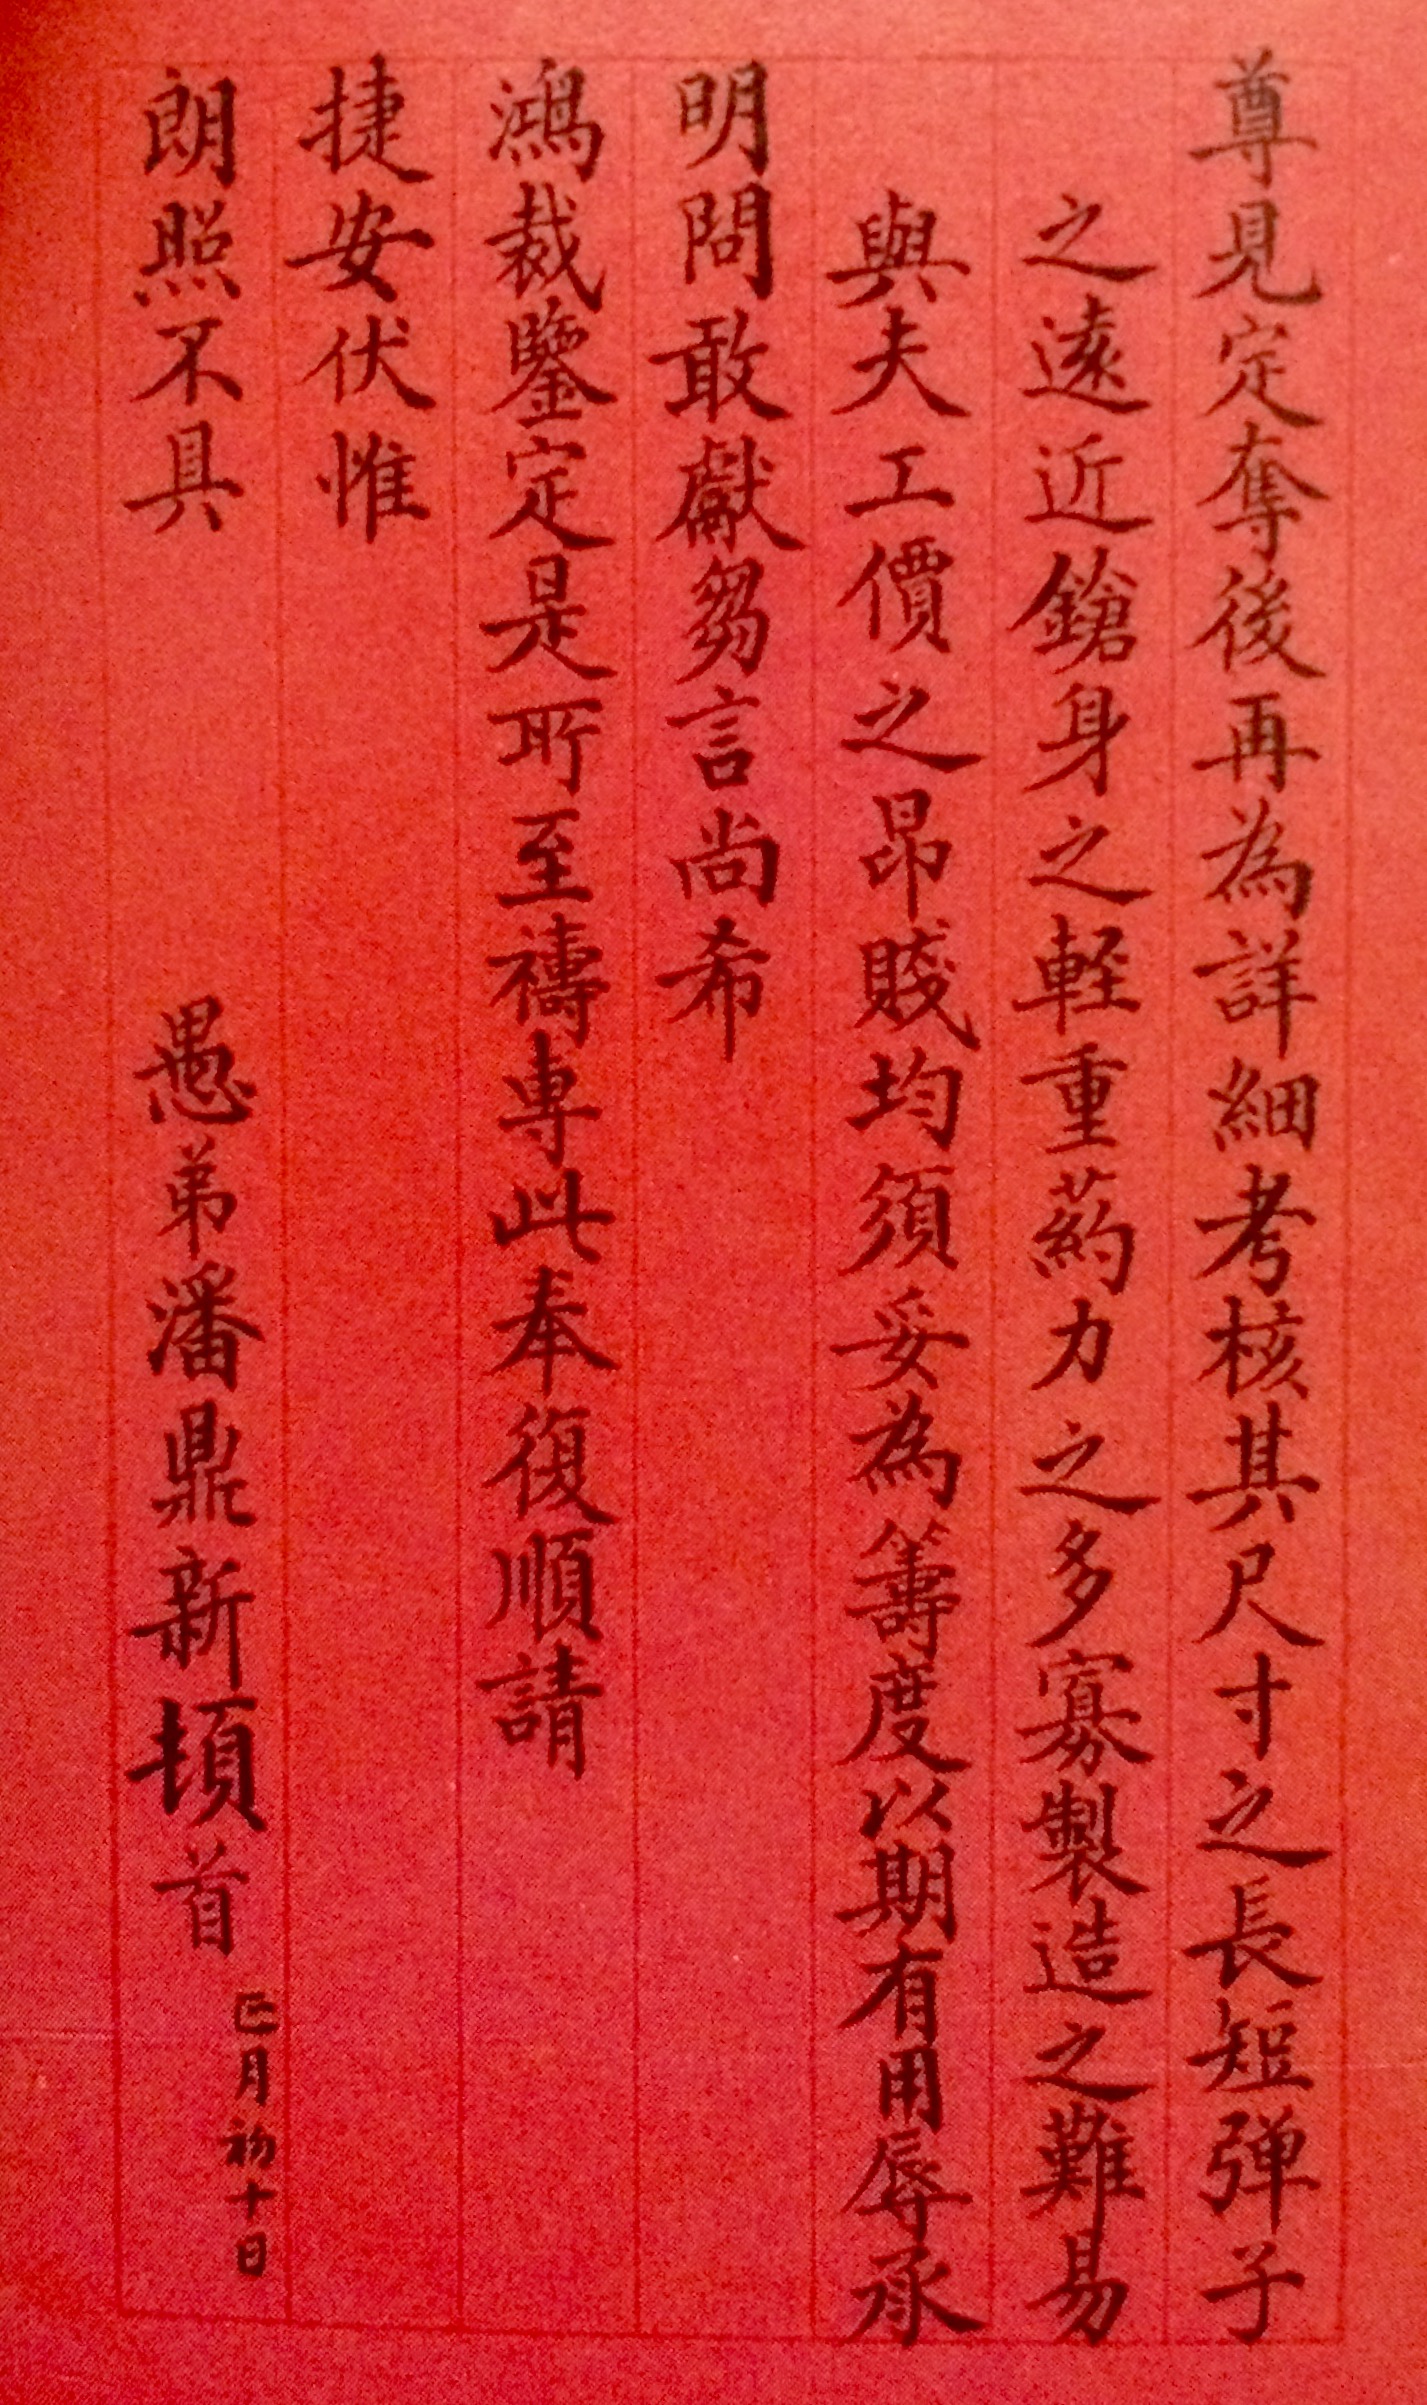 尊見定奪後再為詳細考核其尺寸之長短弹子
之遠近鎗身之軽重药力之多寡製造之難易
與夫工價之昂賤均須妥為籌度以期有用辱承
明問敢獻芻言尚希
鴻裁鑒定是所至禱專此奉復順請
捷安伏惟
朗照不具
愚弟潘鼎新頓首
月初十日